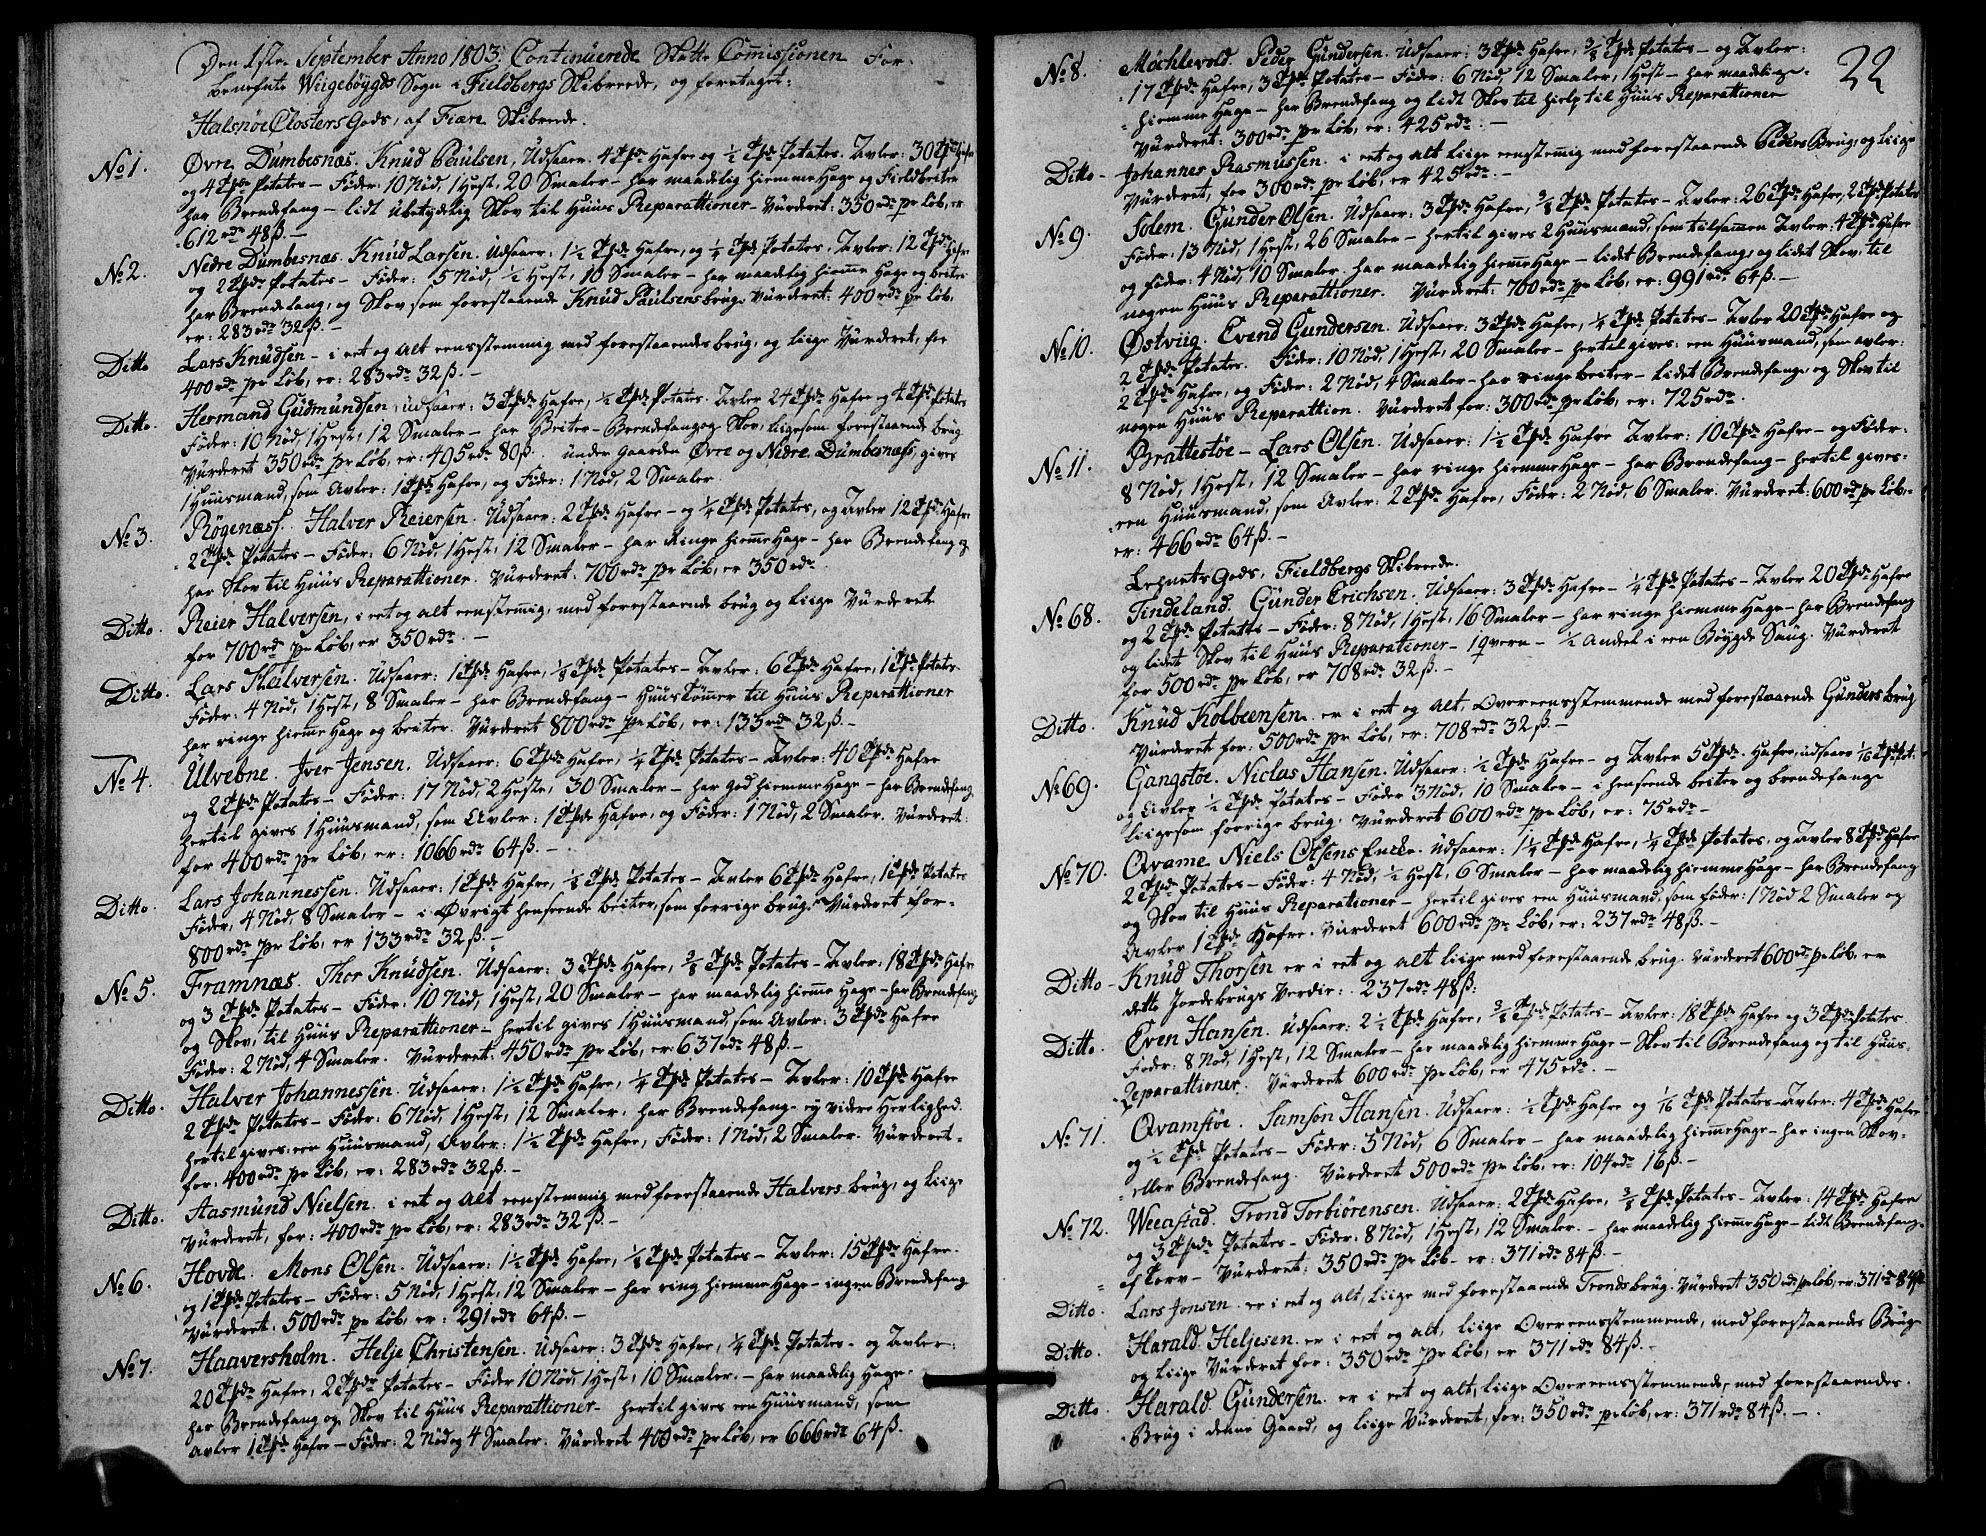 Den 1ste September Anno 1803. Continuerede Skatte Comissionen For
benefnte Wiigebøygds Sogn i Fieldbergs Skibreede, og foretaget:
Halsnøe Closters Gods, af Fiære Skibrede.
No 1. Øvre Dumbesnæs. Knud Paulsen, Udsaaer: 4 Tpde Hafre og ½ Tpde Potates. Avler: 30 Tpde Hafre
og 4 Tpde Potates – Føder: 10 Nød, 1 Hest, 20 Smaler – har maadelig hiemme Hage og Fieldbeiter
har Brendefang – lidt ubetydelig Skov til Huus Reparattioner – Vurderet: 350 rdr pr Løb, er
612 rdr 48 ß. –
No 2. Nedre Dumbesnæs. Knud Larsen. Udsaaer: 1½ Tpde Hafre, og ¼ Tpde Potates, Avler: 12 Tpde Hafre
og 2 Tpde Potates – Føder: 5 Nød, ½ Hest, 10 Smaler – har maadelig hieme Hage og beiter
har Brendefang, og Skov som forestaaende Knud Paulsens brug. Vurderet: 400 rdr pr Løb,
er: 283 rdr 32 ß. –
Ditto Lars Knudsen – i eet og alt eensstemmig med forestaaendes brug, og liige Vurderet, for
400 rdr pr Løb, er: 283 rdr 32 ß. –
Ditto. Hermand Gudmundsen, udsaaer: 3 Tpde Hafre, ½ Tpde Potates. Avler 24 Tpde Hafre og 4 Tpde Potates
Føder: 10 Nød, 1 Hest, 12 Smaler – har Beiter – Brendefang og Skov, liigesom forestaaende brug
Vurderet 350 rdr pr Løb, er: 495 rdr 80 ß. under Gaarden Øvre og Nedre Dumbesnæss, gives
1 Huusmand, som Avler: 1 Tpde Hafre, og Føder: 1 Nød, 2 Smaler.
No 3. Røgenæss. Halver Reiersen. Udsaaer: 2 Tpde Hafre – og ¼ Tpde Potates, og Avler 12 Tpde Hafre
2 Tpde Potates – Føder: 6 Nød, 1 Hest, 12 Smaler – har Ringe hieme Hage – har Brendefang og
har Skov til Huus Reparattioner. Vurderet: 700 rdr pr Løb, er 350 rdr.
Ditto. Reier Halversen, i eet og alt eenstemig, med forestaaende brug og liige Vurderet
for 700 rdr pr Løb, er 350 rdr. –
Ditto. Lars Halversen. Udsaaer: 1 Tpde Hafre, ⅛ Tpde Potates – Avler: 6 Tpde Hafre, 1 Tpde Potates.
Føder: 4 Nød, 1 Hest, 8 Smaler – har Brendefang – Huustømer til Huus Reparattioner
har ringe hieme Hage og beiter. Vurderet 800 rdr pr Løb, er: 133 rdr 32 ß. –
No 4. Ulvebne. Iver Jensen. Udsaaer: 6 Tpde Hafre, ¼ Tpde Potates – Avler: 40 Tpde Hafre
og 2 Tpde Potates – Føder: 17 Nød, 2 Heste, 30 Smaler – har god hieme Hage – har Brendefang
hertil gives 1 Huusmand, som Avler: 1 Tpde Hafre, og Føder: 1 Nød, 2 Smaler. Vurderet:
for 400 rdr pr Løb, er: 1066 rdr 64 ß. –
Ditto. Lars Johannessen. Udsaaer: 1 Tpde Hafre, ⅛ Tpde Potates – Avler 6 Tpde Hafre, 1 Tpde Potates
Føder, 4 Nød, 8 Smaler – i Øvrigt henseende beiter, som forrige brug. Vurderet for –
800 rdr pr Løb, er 133 rdr 32 ß. –
No 5. Framnæs. Thor Knudsen. Udsaaer: 3 Tpde Hafre, ⅜ Tpde Potates – Avler: 18 Tpde Hafre
og 3 Tpde Potates – Føder: 10 Nød, 1 Hest, 20 Smaler – har maadelig hieme Hage – har Brendefang
og Skov, til Huus Reparattioner – hertil gives 1 Huusmand, som Avler: 3 Tpde Hafre
Føder: 2 Nød, 4 Smaler. Vurderet: 450 rdr pr Løb, er: 637 rdr 48 ß. –
Ditto. Halver Johannessen. Udsaaer: 1½ Tpde Hafre, ¼ Tpde Potates – Avler: 10 Tpde Hafre
2 Tpde Potates – Føder: 6 Nød, 1 Hest, 12 Smaler. har Brendefang – ey videre Herlighed.
hertil gives: een Huusmand, Avler: 1½ Tpde Hafre, Føder: 1 Nød, 2 Smaler. Vurderet –
for: 400 rdr pr Løb, er: 283 rdr 32 ß. –
Ditto. Aasmund Nielsen. i eet og Alt eenstemmig med forestaaende Halvers brug, og liige
Vurderet, for: 400 rdr pr Løb, er: 283 rdr 32 ß. –
No 6. Hovde. Mons Olsen. Udsaaer: 1½ Tpde Hafre, ⅛ Tpde Potates – Avler: 15 Tpde Hafre.
og 1 Tpde Potates – Føder: 5 Nød, 1 Hest, 12 Smaler – har ring hiemme Hage – ingen Brendefang
Vurderet. 500 rdr pr Løb, er: 291 rdr 64 ß. –
No 7. Haaversholm. Helje Christensen. Udsaaer: 3 Tpde Hafre, ¼ Tpde Potates – og Avler:
20 Tpde Hafre, 2 Tpde Potates – Føder 10 Nød, 1 Hest, 10 Smaler – har maadelig Hage,
har Brendefang og Skov til Huus Reparattioner – hertil gives een Huusmand, som
avler 1 Tpde Hafre – Føder: 2 Nød og 4 Smaler. Vurderet 400 rdr pr Løb, er 666 rdr 64 ß.
22
No 8. Møchlevold. Peder Gundersen. Udsaaer: 3 Tpde Hafre, ⅜ Tpde Potates – og Avler:
17 Tpde Hafre, 3 Tpde Potates – Føder: 6 Nød, 12 Smaler, 1 Hest – har maadelige
hiemme Hage – har Brendefang og lidt Skov til hielp til Huus Reparattioner
Vurderet: 300 rdr pr Løb, er: 425 rdr. –
Ditto – Johannes Rasmussen. i eet og alt liige eenstemig med forestaaende Peders Brug, og liige
Vurderet, for 300 rdr pr Løb, er 425 rdr. –
No 9. Solem. Gunder Olsen. Udsaaer: 3 Tpde Hafre, ⅜ Tpde Potates – Avler: 26 Tpde Hafre, 2 Tpde Potates
Føder: 13 Nød, 1 Hest, 26 Smaler – hertil gives 2 Huusmænd, som tilsamen Avler: 4 Tpde Hafre
og føder: 4 Nød, 10 Smaler. har maadelig hieme Hage – lidet Brendefang, og lidet Skov, til
nogen Huus Reparattioner. Vurderet: 700 rdr pr Løb, er: 991 rdr 64 ß. –
No 10. Østviig. Evend Gundersen. Udsaaer: 3 Tpde Hafre, ¼ Tpde Potates – Avler 20 Tpde Hafre og
2 Tpde Potates. Føder: 10 Nød, 1 Hest, 20 Smaler – hertil gives: een Huusmand, som avler:
2 Tpde Hafre, og Føder: 2 Nød, 4 Smaler – har ringe beiter – lidet Brendefang, og Skov til
nogen Huus Reparattion. Vurderet for: 300 rdr pr Løb, er: 725 rdr.
No 11. Brattestøe – Lars Olsen. Udsaaer: 1½ Tpde Hafre Avler: 10 Tpde Hafre – og Føder:
8 Nød, 1 Hest, 12 Smaler – har ringe hiemme Hage – har Brendefang – hertil gives:
een Huusmand, som Avler: 2 Tpde Hafre, Føder: 2 Nød, 6 Smaler. Vurderet: 600 rdr pr Løb,
er: 466 rdr 64 ß. –
Lehnets Gods, Fieldbergs Skibreede.
No 68. Tindeland. Gunder Erichsen. Udsaaer: 3 Tpde Hafre – ¼ Tpde Potates – Avler 20 Tpde Hafre
og 2 Tpde Potates – Føder: 8 Nød, 1 Hest, 16 Smaler – har ringe hiemme Hage – har Brendefang
og lidet Skov til Huus Reparationer – 1 qvern – ½ Andel i een Bøygde Saug. Vurderet
for 500 rdr pr Løb, er 708 rdr 32 ß. –
Ditto. Knud Kolbeensen. er i eet og alt. Overeensstemmende med forestaaende Gunders brug
Vurderet for: 500 rdr pr Løb, er: 708 rdr 32 ß. –
No 69. Gangstøe. Niclas Hansen. Udsaaer: ½ Tpde Hafre – og Avler 5 Tpde Hafre, udsaaer 1/16 Tpde Pot:
og Avler ½ Tpde Potates – Føder 3 Nød, 10 Smaler – i henseende beiter og brendefang
liigesom forrige brug. Vurderet 600 rdr pr Løb, er: 75 rdr –
No 70. Qvame Niels Olsens Encke. Udsaaer: 1¼ Tpde Hafre, ¼ Tpde Potates, og Avler 8 Tpde Hafre
2 Tpde Potates – Føder: 4 Nød, ½ Hest, 6 Smaler – har maadelig hieme Hage – har Brendefang
og Skov til Huus Reparationer – hertil gives een Huusmand, som føder: 1 Nød 2 Smaler og
Avler 1 Tpde Hafre. Vurderet 600 rdr pr Løb, er: 237 rdr 48 ß. –
Ditto – Knud Thorsen er i eet og alt liige med forestaaende brug. Vurderet 600 rdr pr Løb, er
dette Jordebrugs Verdie: 237 rdr 48 ß:
Ditto. Even Hansen. Udsaaer: 2½ Tpde Hafre, ⅜ Tpde Potates – Avler: 18 Tpde Hafre og 3 Tpde Potates
Føder: 8 Nød, 1 Hest, 12 Smaler – har maadelig hiemme Hage – Skov til Brendefang og til Huus.
Reparattioner. Vurderet 600 rdr pr Løb, er 475 rdr. –
No 71. Qvamstøe. Samson Hansen. Udsaaer: ½ Tpde Hafre og 1/16 Tpde Potates – Avler: 4 Tpde Hafre
og ½ Tpde Potates – Føder: 3 Nød, 6 Smaler – har maadelig hieme Hage – har ingen Skov –
eller Brendefang. Vurderet 500 rdr pr Løb, er: 104 rdr 16 ß. –
No 72. Weeastad. Trond Torbiørensen. Udsaaer: 2 Tpde Hafre, ⅜ Tpde Potates – Avler: 14 Tpde Hafre
og 3 Tpde Potates – Føder: 8 Nød, 1 Hest, 12 Smaler – har maadelig hieme Hage – lidt Brendefang
af Torv – Vurderet: 350 rdr pr Løb – er: 371 rdr 84 ß. –
Ditto. Lars Jonsen er i eet og alt, liige med forestaaende Tronds brug. Vurderet 350 rdr pr Løb, er: 371 rdr 84 ß
Ditto. Harald Heljesen. er i eet og alt, liige Overeensstemmende, med forestaaendes Brug
og liige Vurderet for: 350 rdr pr Løb, er 371 rdr 84 ß. –
Ditto. Harald Gundersen. er i eet og alt, liige Overeensstemmende, med forestaaendes.
Brug i denne Gaard, og liige Vurderet, for: 350 rdr pr Løb, er: 371 rdr 84 ß. –